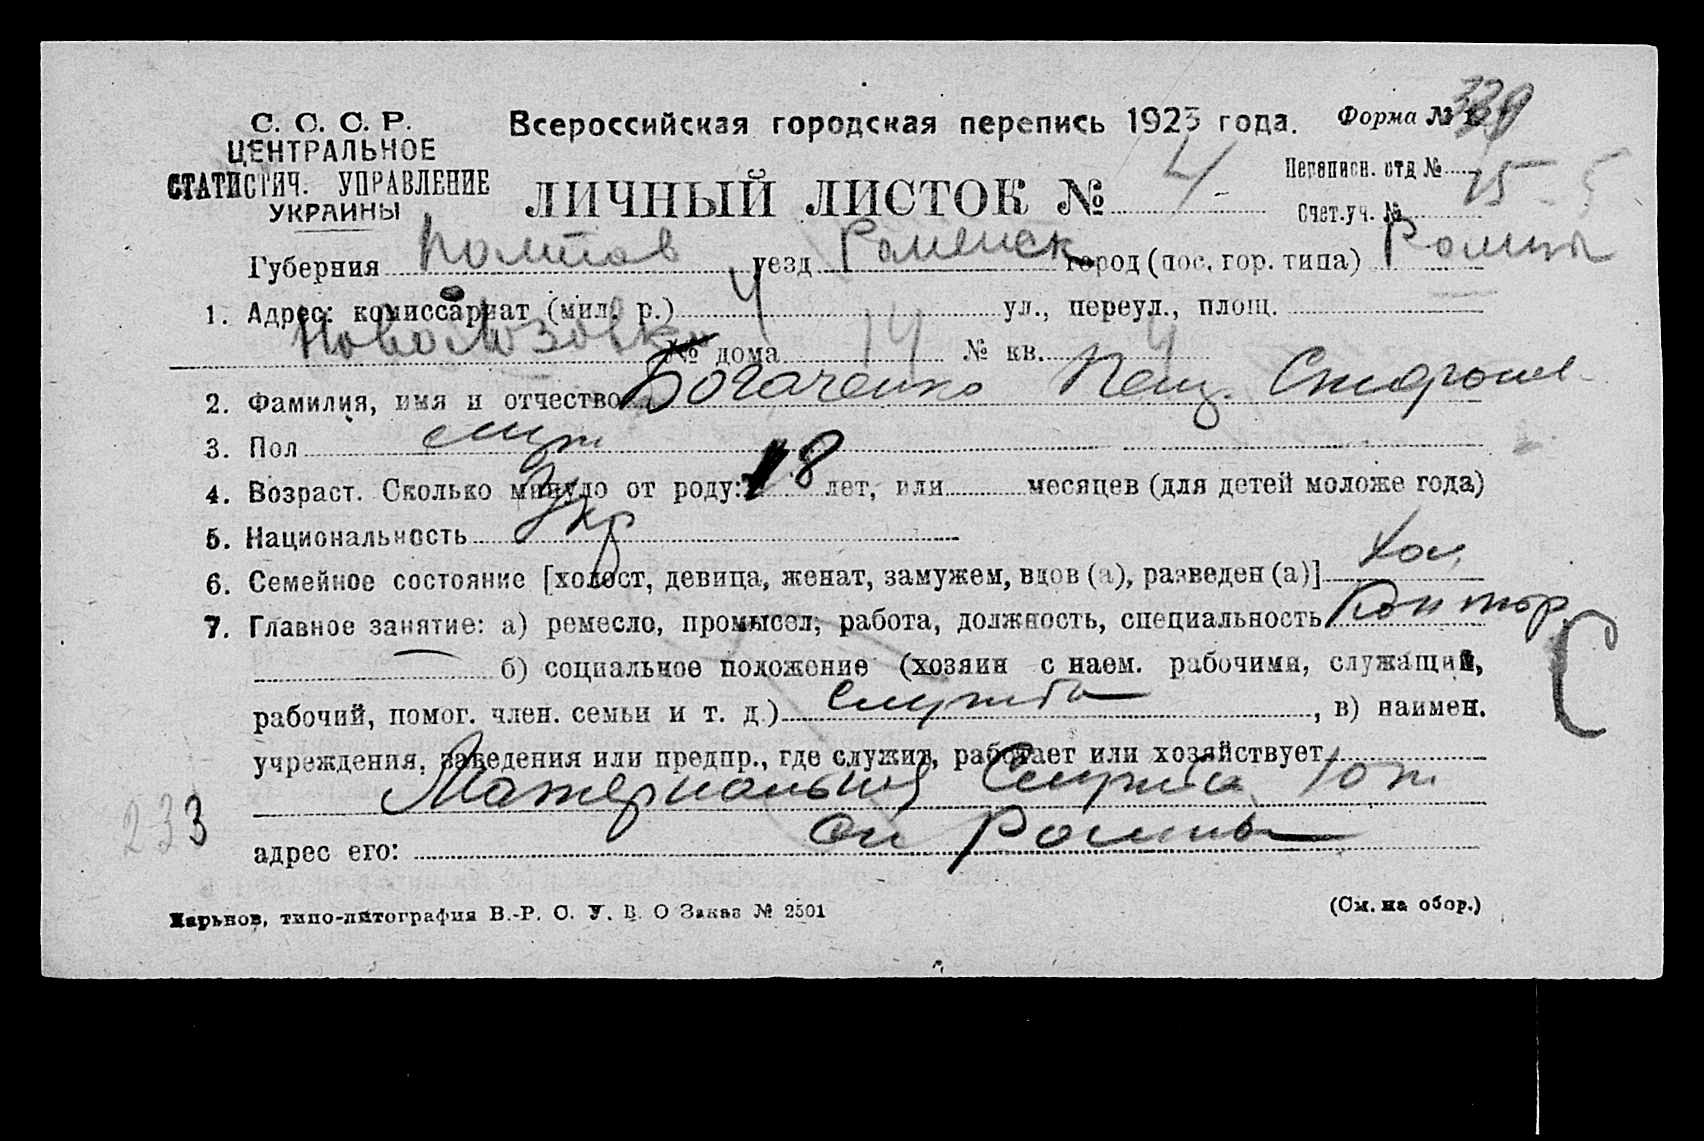 С. С. С. Р.
ЦЕНТРАЛЬНОЕ
СТАТИСТИЧ. УПРАВЛЕНИЕ
УКРАИНЫ
Всероссийская городская перепись 1923 года.
Форма №
ЛИЧНЫЙ ЛИСТОК № 4
Переписн. отд №
Счет.уч. № 15
Губерния Полтав уезд Роменск город (пос. гор. типа) Ромны
1. Адрес: комиссариат (мил. р.) ул., переул., площ.
№ дома 14 № кв. 4
2. Фамилия, имя и отчество Богаченко
3. Пол муж
4. Возраст. Сколько минуло от роду: 18 лет, или месяцев (для детей моложе года)
5. Национальность Укр
6. Семейное состояние [холост, девица, женат, замужем, вдов (а), разведен (а)] хол.
7. Главное занятие: а) ремесло, промысел, работа, должность, специальность Контор
б) социальное положение (хозяин с наем. рабочими, служащий,
рабочий, помог. член. семьи и т. д.) служба, в) наимен.
учреждения, заведения или предпр., где служит, работает или хозяйствует
Материальная Служба Ю
адрес его: ст Ромны
233
Харьков, типо-литография В.-Р. С. У. В. О Заказ № 2501
(См. на обор.)